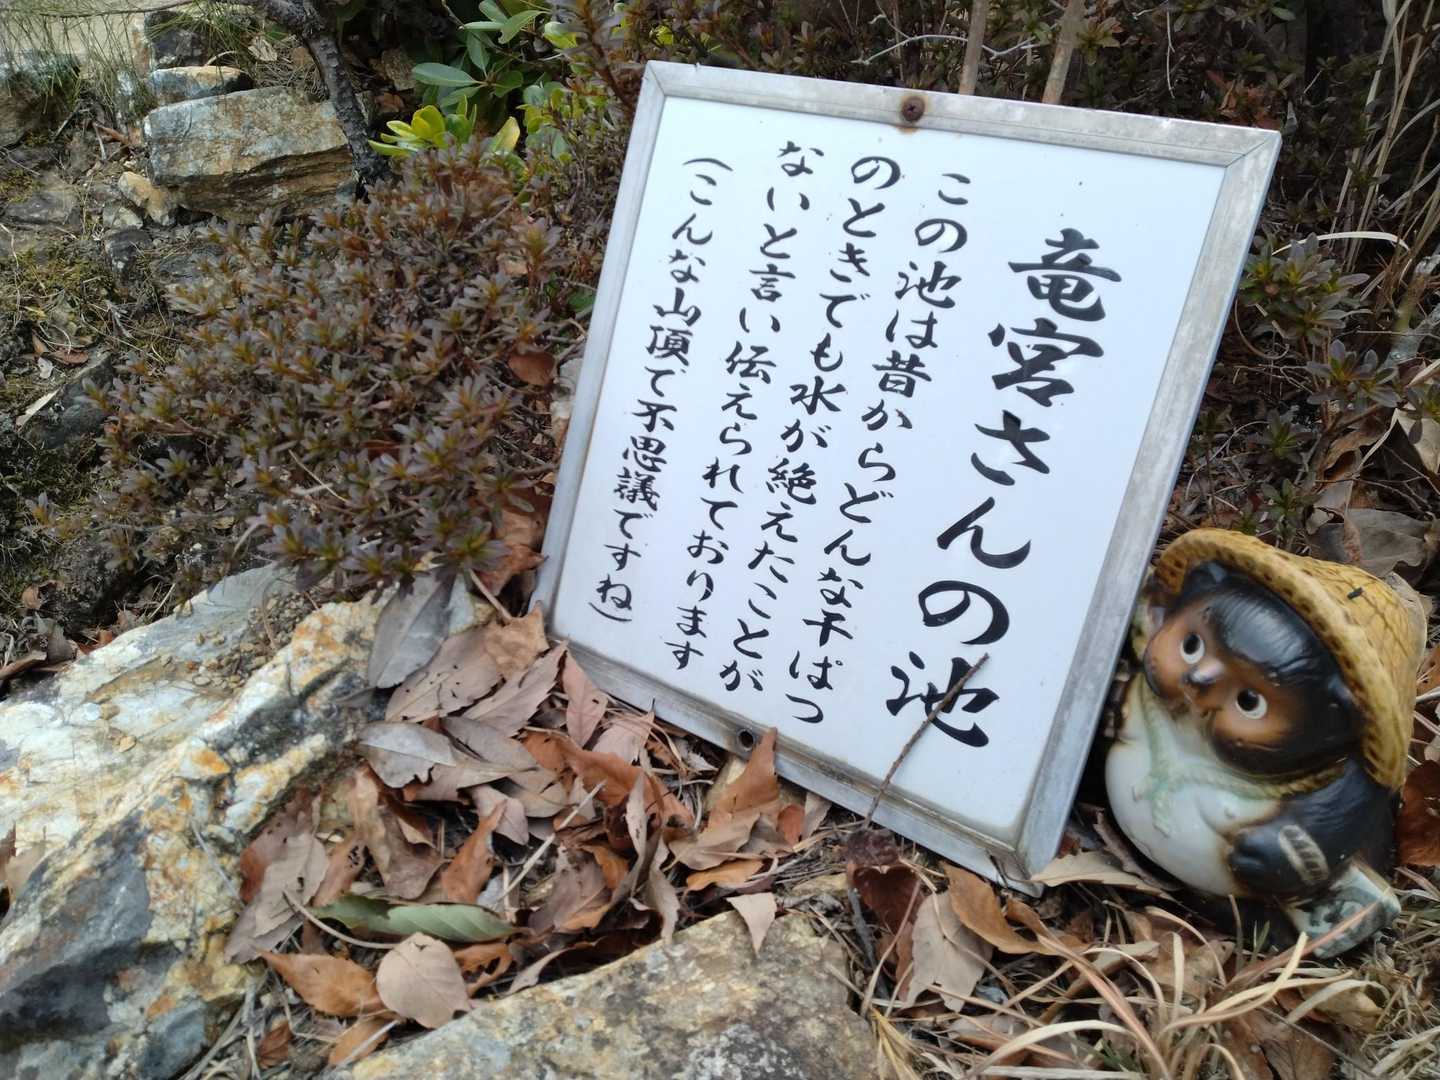 竜宮さんの池
この池は昔からどんな干ぱつ
のときでも水が絶えたことが
ないと言い伝えられております
(こんな山頂で不思議ですね)